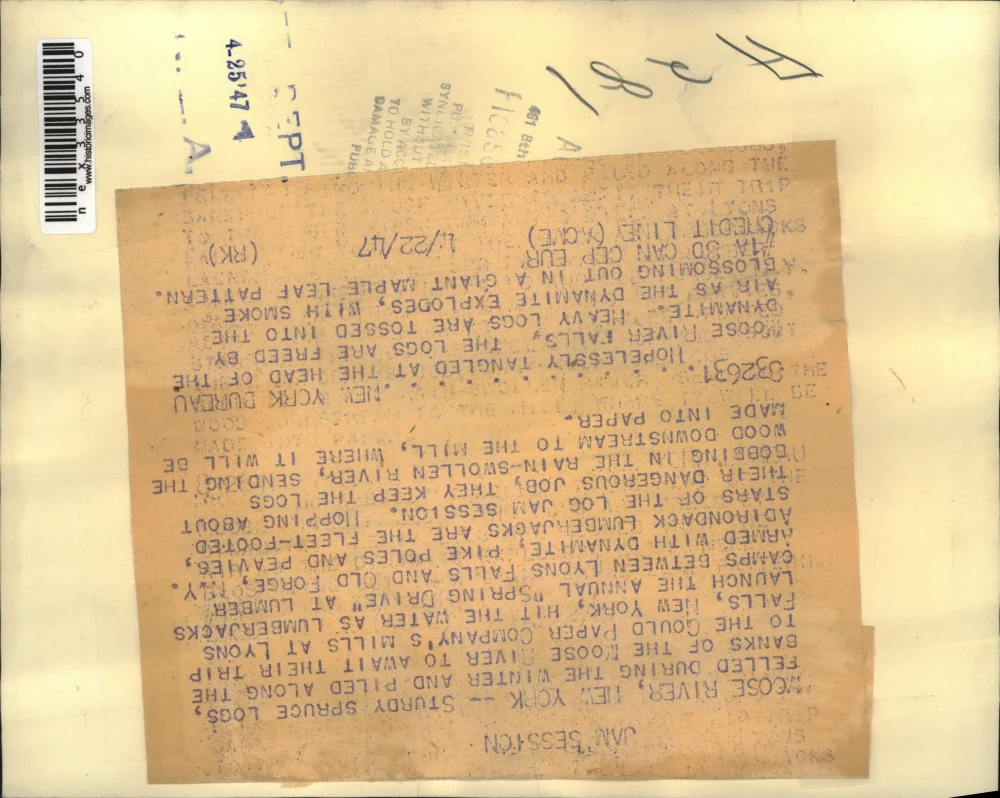 JAM SESSION
MOOSE RIVER, NEW YORK -- STURDY SPRUCE LOGS,
FELLED DURING THE WINTER AND PILED ALONG THE
BANKS OF THE MOOSE RIVER TO AWAIT THEIR TRIP
TO THE GOULD PAPER COMPANY'S MILLS AT LYONS
FALLS, NEW YORK, HIT THE WATER AS LUMBERJACKS
LAUNCH THE ANNUAL "SPRING DRIVE" AT LUMBER
CAMPS BETWEEN LYONS FALLS AND OLD FORGE, N.Y.
ARMED WITH DYNAMITE, PIKE POLES AND PEAVIES,
ADIRONDACK LUMBERJACKS ARE THE FLEET-FOOTED
STARS OF THE LOG JAM SESSION. HOPPING ABOUT
THEIR DANGEROUS JOB, THEY KEEP THE LOGS
BOBBING IN THE RAIN-SWOLLEN RIVER, SENDING THE
WOOD DOWNSTREAM TO THE MILL, WHERE IT WILL BE
MADE INTO PAPER.
NEW YORK BUREAU
332631
HOPELESSLY TANGLED AT THE HEAD OF THE
MOOSE RIVER FALLS, THE LOGS ARE FREED BY
DYNAMITE. HEAVY LOGS ARE TOSSED INTO THE
AIR AS THE DYNAMITE EXPLODES, WITH SMOKE
BLOSSOMING OUT IN A GIANT MAPLE LEAF PATTERN.
#4A SD CAN CEP EUR
CREDIT LINE (ACME) 4/22/47 (RK)
4-25'47
DEPT.
461 8th
nex3335540
www.historicimages.com